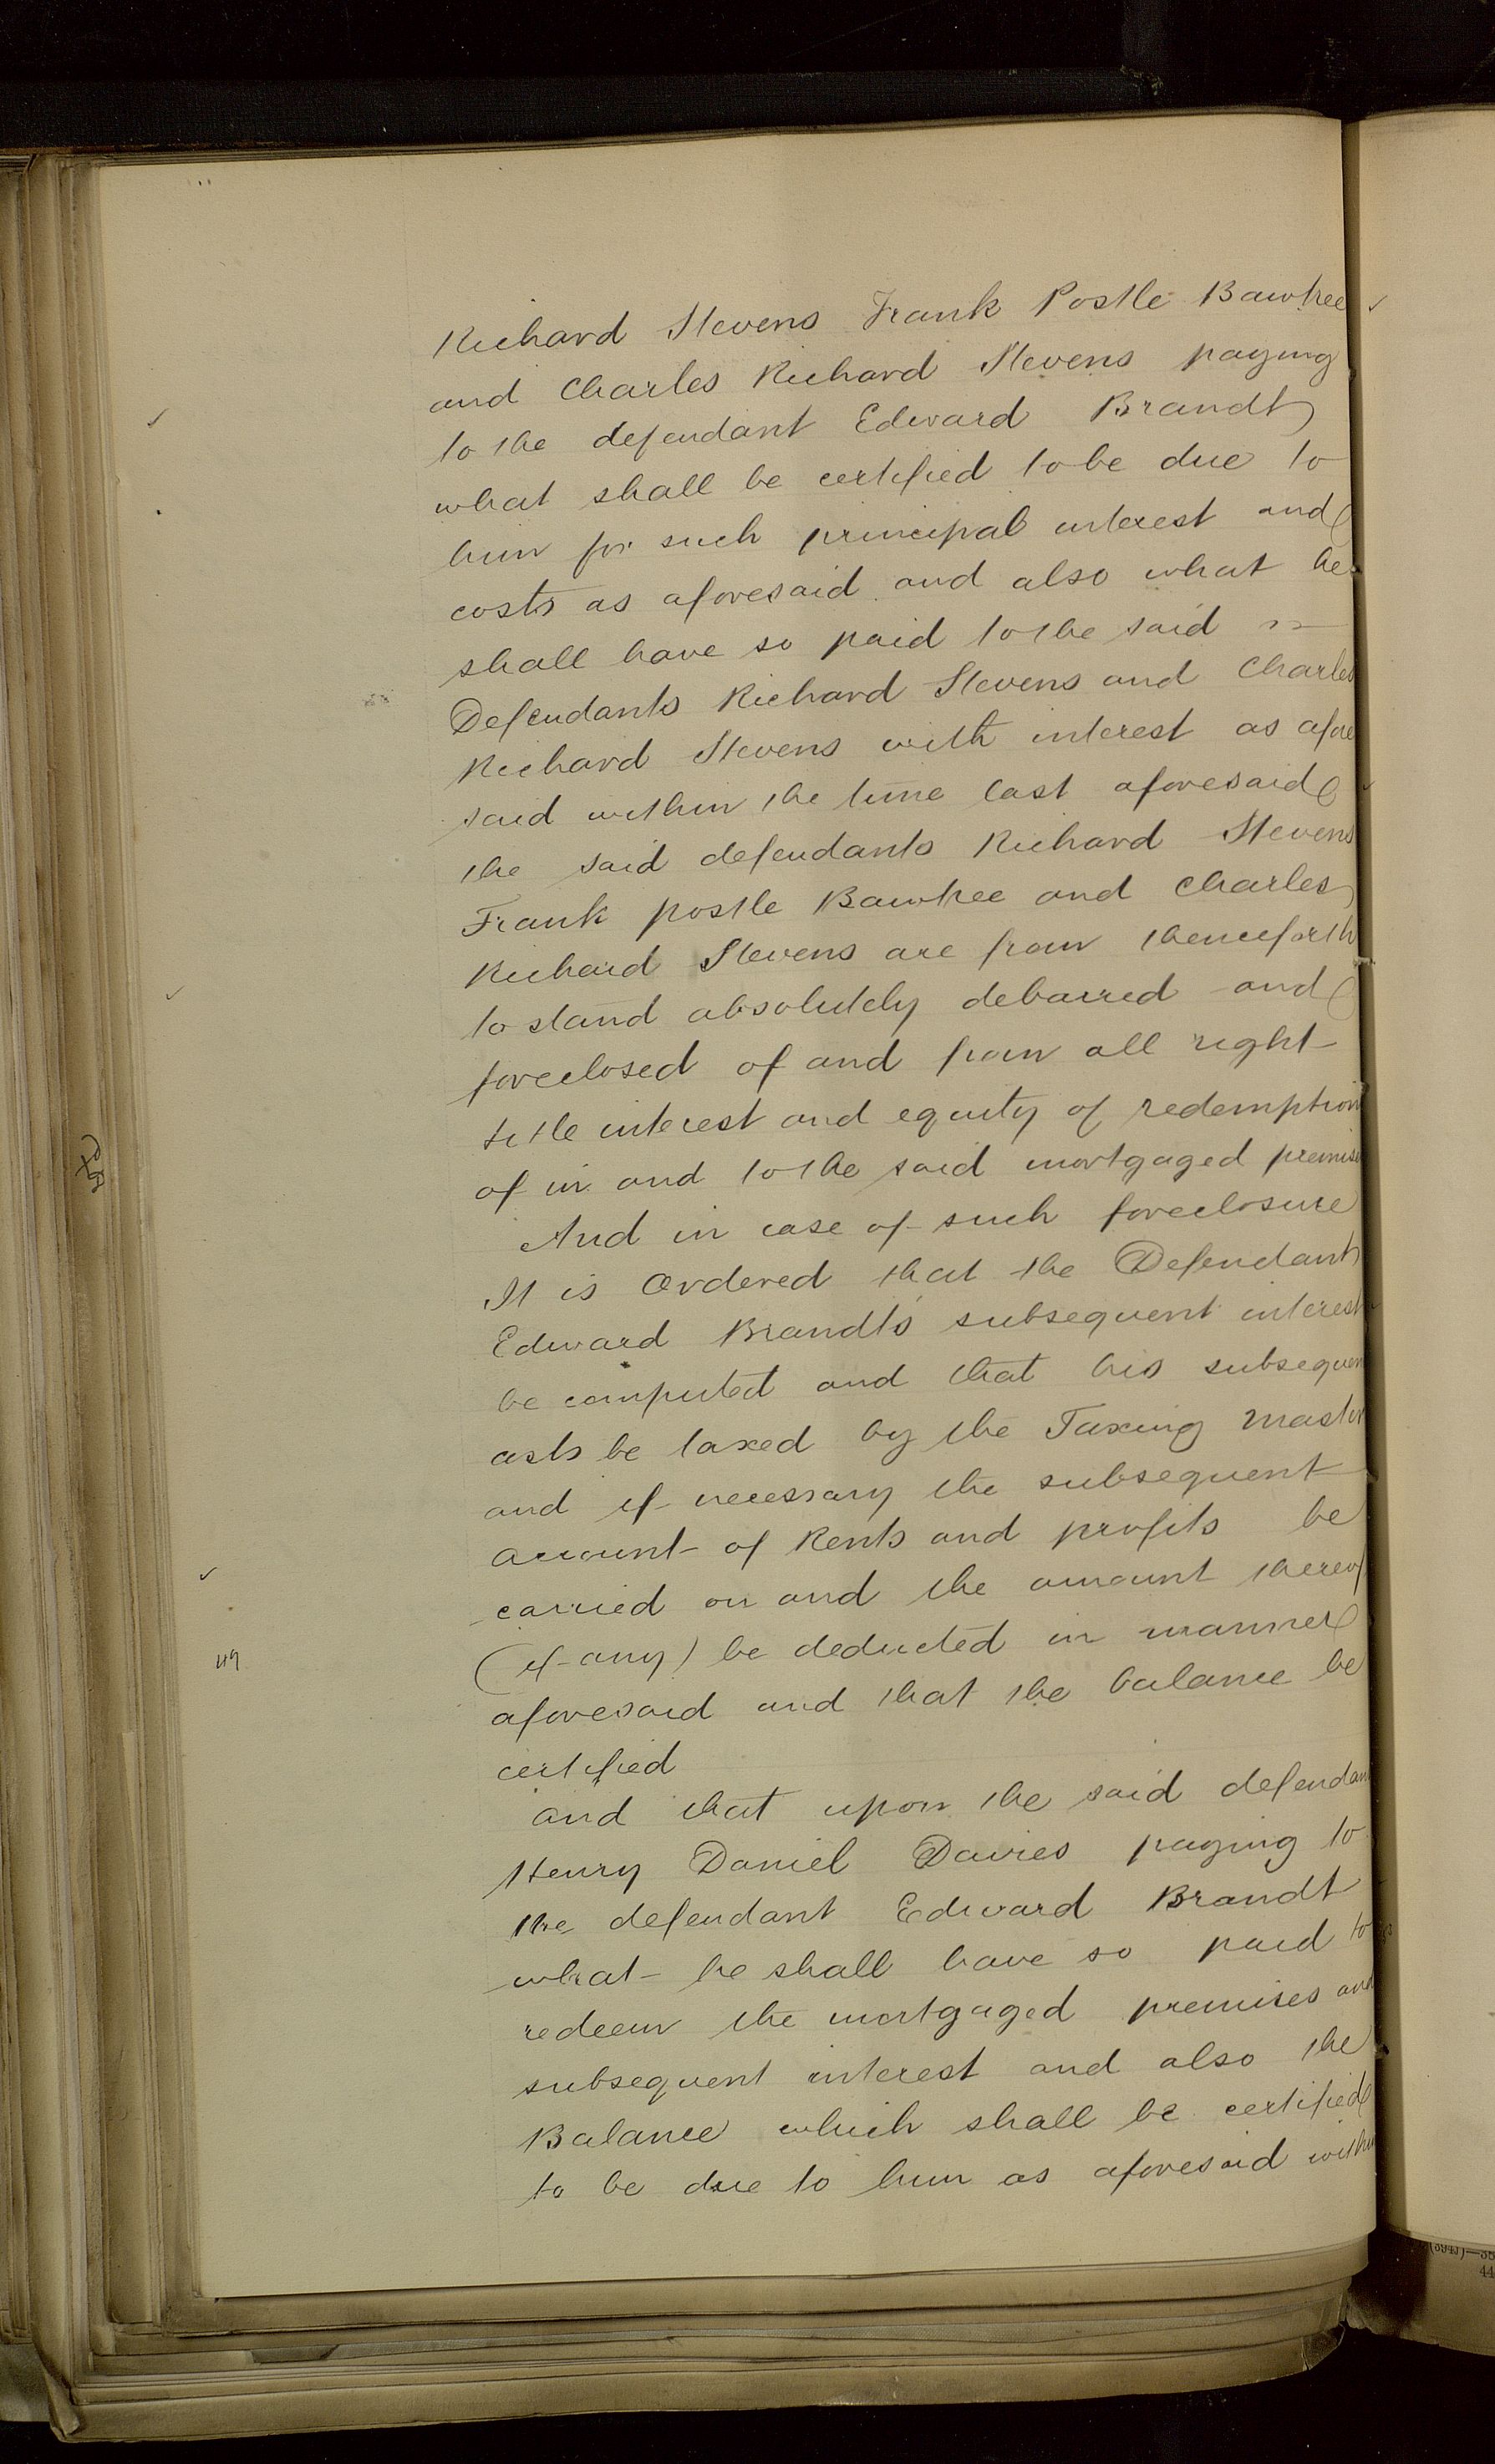 Richard Stevens Frank Postle Bawtree
and Charles Richard Stevens paying
to the defendant Edward Brandt
what shall be certified to be due to
him for such principal interest and
costs as aforesaid and also what he
shall have so paid to the said
Defendants Richard Stevens and Charles
Richard Stevens with interest as afore
said within the time last aforesaid
the said defendants Richard Stevens
Frank postle Bawtree and Charles
Richard Stevens are from thenceforth
to stand absolutely debarred and
foreclosed of and from all right
title interest and equity of redemption
of in and to the said mortgaged premises
And in case of such foreclosure
It is Ordered that the Defendant
Edward Brandt's subsequent interest
be computed and that his subsequent
costs be taxed by the Taxing Master
and if necessary the subsequent
account of Rents and profits be
carried on and the amount thereof
(if any) be deducted in manner
49
aforesaid and that the balance be
certified
and that upon the said defendant
Henry Daniel Davies paying to
the defendant Edward Brandt
what he shall have so paid to
redeem the mortgaged premises and
subsequent interest and also the
Balance which shall be certified
to be due to him as aforesaid within
44